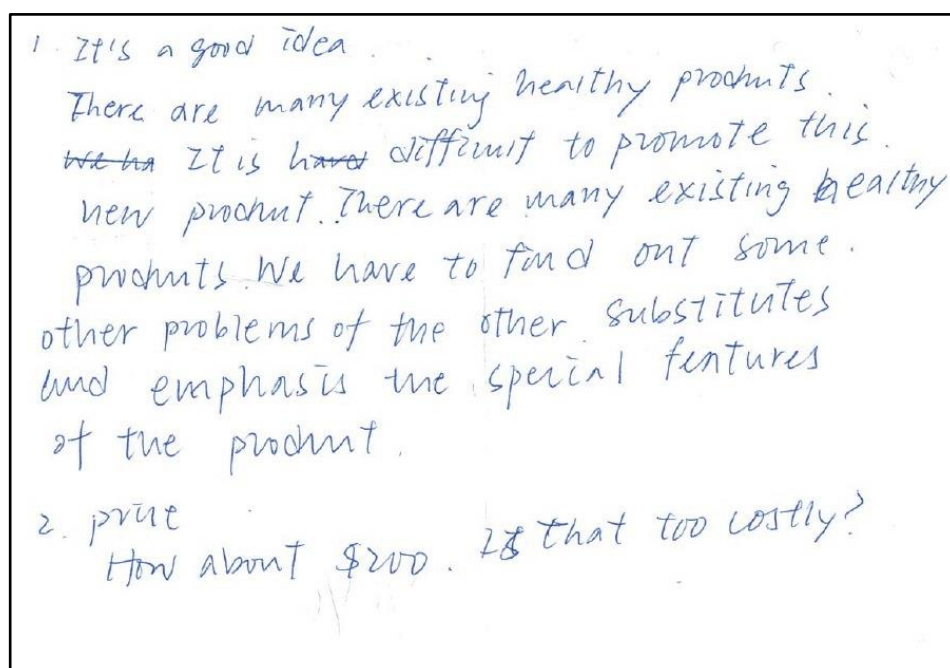 1. It's a good idea.
There are many existing healthy products.
We ha It is hard difficult to promote this
new product. There are many existing healthy
products. We have to find out some.
other problems of the other substitutes
and emphasis the special features
of the product.
2. price
How about $200. Is that too costly?